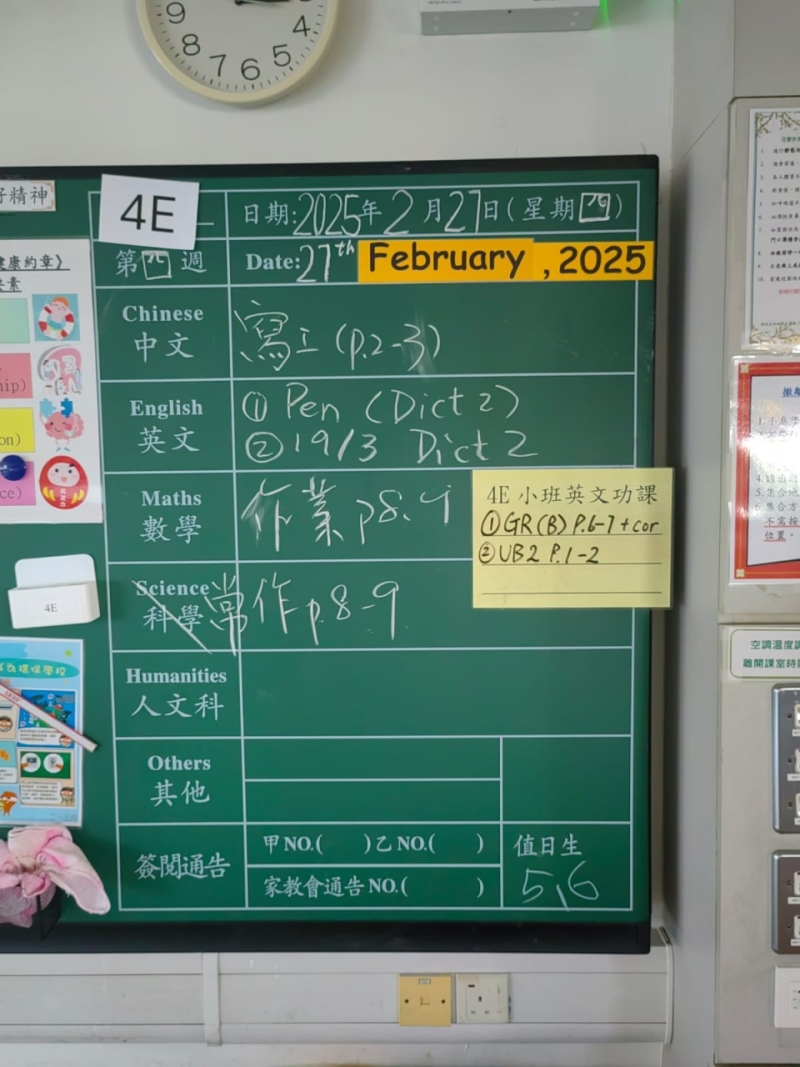 9
8
7
6
5
4
好精神
4E
日期:2025年2月27日(星期四)
第四週
Date:27th February , 2025
健康約章》
Chinese
中文
寫工(p.2-3)
English
英文
① Pen (Dict 2)
② 19/3 Dict 2
Maths
數學
作業 p8.9
4E 小班英文功課
① GR(B) P.6-7 + cor
② UB2 P.1-2
Science
科學
常作 p.8-9
4E
Humanities
人文科
Others
其他
簽閱通告
甲NO.( )乙NO.( )
家教會通告NO.( )
值日生
5,6
空調溫度
離開課室時